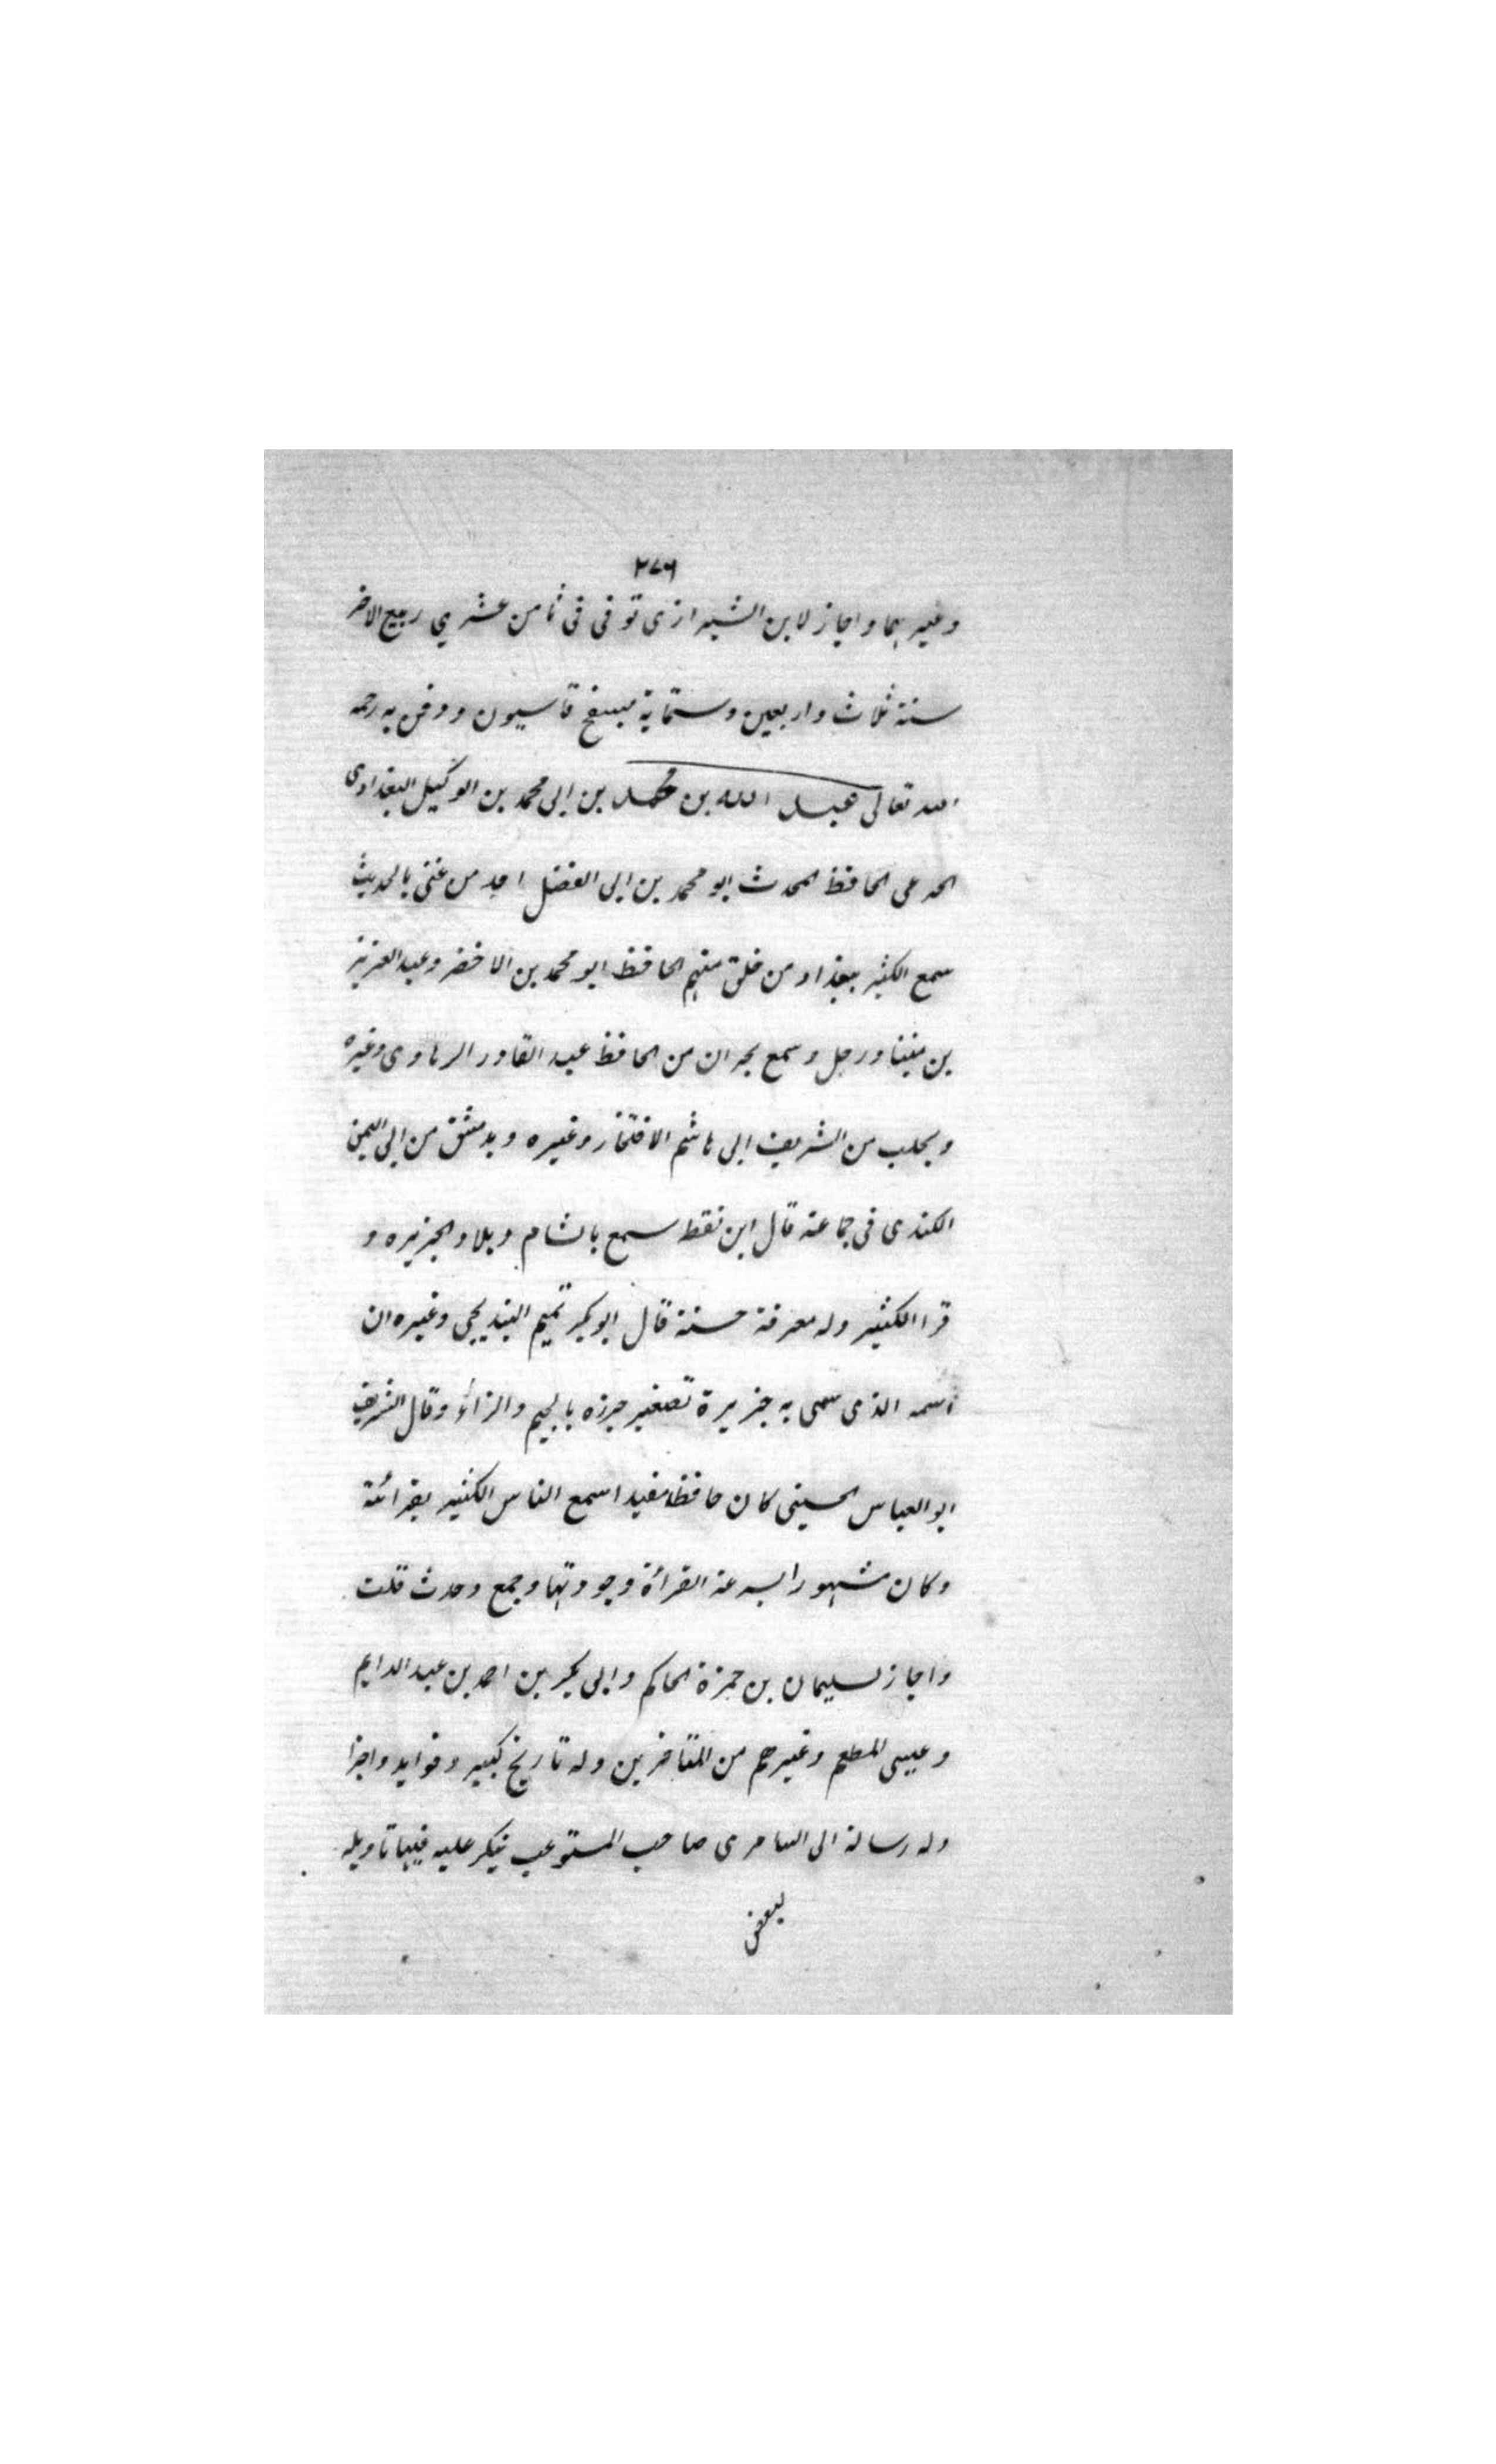 ٢٧٦
وغيرهما واجاز لابن الشيرازى توفى فى ثامن عشرى ربيع الاخر
سنة ثلاث واربعين وستماية بسفح قاسيون ودفن به رحمه
الله تعالى عبد الله بن محمد بن ابى محمد بن الوكيل البغدادى
الحافظ المحدث ابو محمد بن ابى الفضل احد من عنى بالحديث
سمع الكثير ببغداد من خلق منهم الحافظ ابو محمد بن الاخضر وعبد العزيز
بن منينا ورحل وسمع بحران من الحافظ عبد القادر الرهاوى وغيره
وبحلب من الشريف ابى هاشم الافتخار وغيره وبدمشق من ابى اليمن
الكندى فى جماعة قال ابن نقطه سمع بالشام وبلاد الجزيره و
قرا الكثير وله معرفة حسنة قال ابو بكر تميم البنديجى وغيره ان
اسمه الذى سمى به جزيرة تصغير جرزه بالجيم والزاء وقال الشريف
ابو العباس الحسينى كان حافظا مفيدا اسمع الناس الكثير بقرائة
وكان مشهورا بسرعة القرأة وجودتها وجمع وحدث قلت
واجاز لسليمان بن حمزة الحاكم وابى بكر بن احمد بن عبد الدايم
وعيسى المطعم وغيرهم من المتاخرين وله تاريخ كبير وفوايد واجزا
وله رسالة الى السامرى صاحب المستوعب ينكر عليه فيها تاويله
لبعض